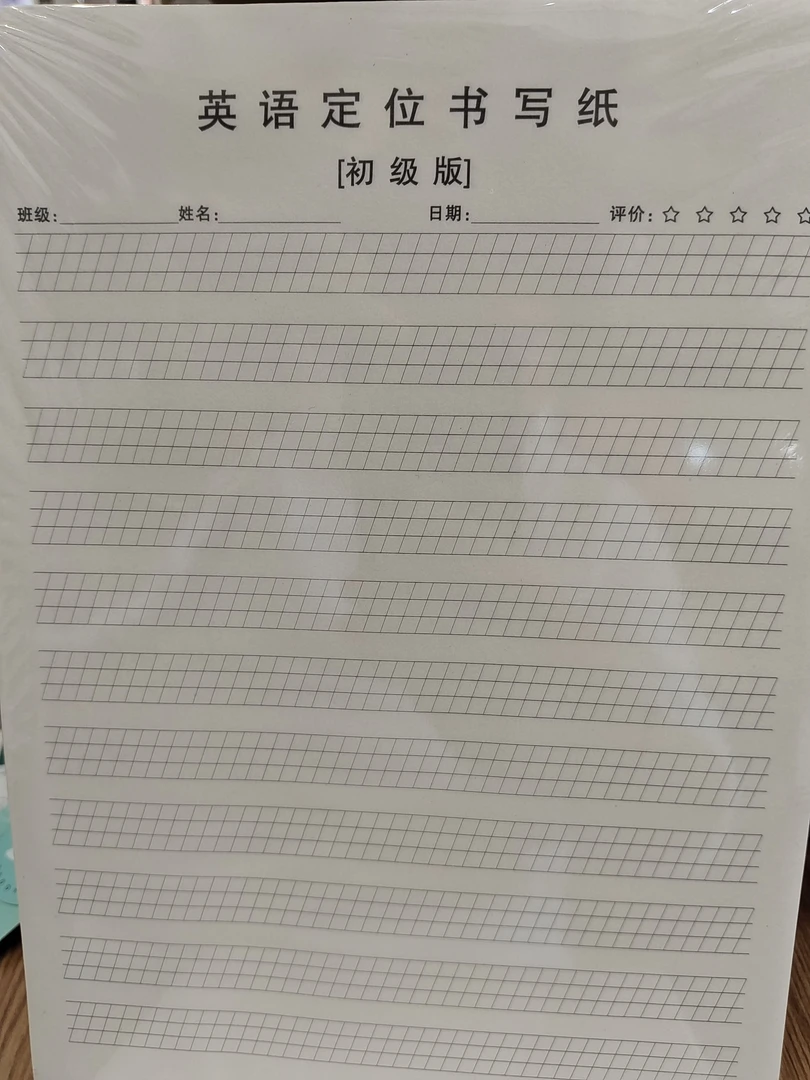 英语定位书写纸
[初级版]
班级:____________姓名:____________ 日期:____________ 评价:☆ ☆ ☆ ☆ ☆